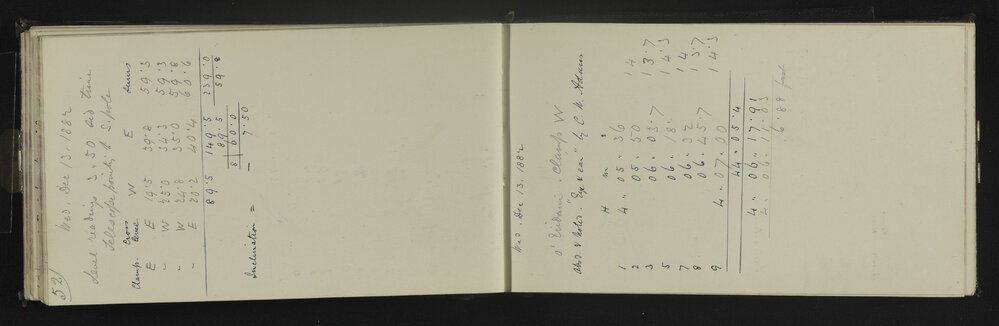 52)
Wed. Dec 13. 1882
Level readings 3.50 sid time
Telescope pointing to S. pole
Clamp. Cross level W E Sums
E E 19.5 39.8 59.3
" W 25.0 34.3 59.3
" W 24.8 35.0 59.8
" E 20.2 40.4 60.6
89.5 149.5 239.0
89.5 59.8
8 60.0
Inclination = - 7.50
Wed. Dec 13. 1882
o' Eridani Clamp W
Obsd. & Noted. "Eye & ear" by C. W. Adams
H m s
1 4 " 05 " 36 14
2 05 " 50 13.7
3 06 " 03.7 14.3
5 06 " 18. 14
7 06 " 32 13.7
8 06 " 45.7 14.3
9 4 " 07 " 00
44 " 05.4
4 " 06 " 17.91
4 " 06 " 11.03
6.88 fast